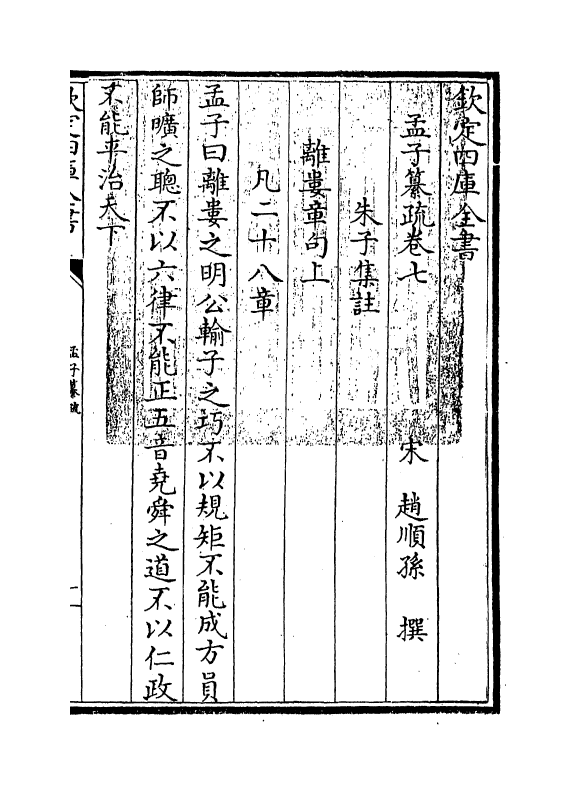 欽定四庫全書
孟子纂疏卷七 宋 趙順孫 撰
朱子集註
離婁章句上
凡二十八章
孟子曰離婁之明公輸子之巧不以規矩不能成方員
師曠之聰不以六律不能正五音堯舜之道不以仁政
不能平治天下
欽定四庫全書 孟子纂疏 一